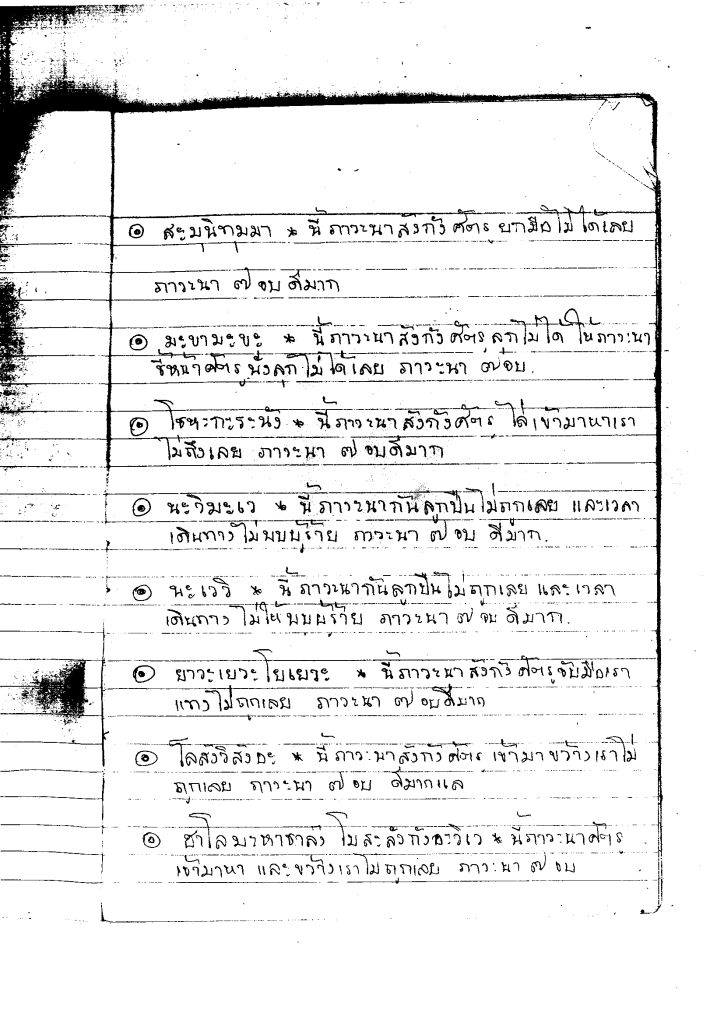 ๏ สะมุนิทุมมา * นี้ภาวะนาสังกังศัตรูยกมือไม่ได้เลย
ภาวะนา ๗ จบ ดีมาก
๏ มะขามะขะ * นี้ภาวะนาสังกังศัตรูลุกไม่ได้ ให้ภาวะนา
ชี้หน้าศัตรูนั่งลุกไม่ได้เลย ภาวะนา ๗ จบ.
๏ โธหะกะระนัง * นี้ภาวะนาสังกังศัตรู ไล่เข้ามาหาเรา
ไม่ถึงเลย ภาวะนา ๗ จบดีมาก
๏ นะวิมะเว * นี้ภาวะนากันลูกปืนไม่ถูกเลย และเวลา
เดินทางไม่พบผู้ร้าย ภาวะนา ๗ จบ ดีมาก.
๏ นะเววิ * นี้ภาวะนากันลูกปืนไม่ถูกเลย และเวลา
เดินทางไม่ให้พบผู้ร้าย ภาวะนา ๗ จบ ดีมาก.
๏ ยาวะเยวะโยเยวะ * นี้ภาวะนาสังกังศัตรูจับมือเรา
แทงไม่ถูกเลย ภาวะนา ๗ จบดีมาก
๏ โลสังวิสังอะ * นี้ภาวะนาสังกังศัตรู เข้ามาขว้างเราไม่
ถูกเลย ภาวะนา ๗ จบ ดีมากแล
๏ ชาโลมาหาชาลัง โมสะลังกังอะวิเว * นี้ภาวะนาศัตรู
เข้ามาหา และขว้างเราไม่ถูกเลย ภาวะนา ๗ จบ